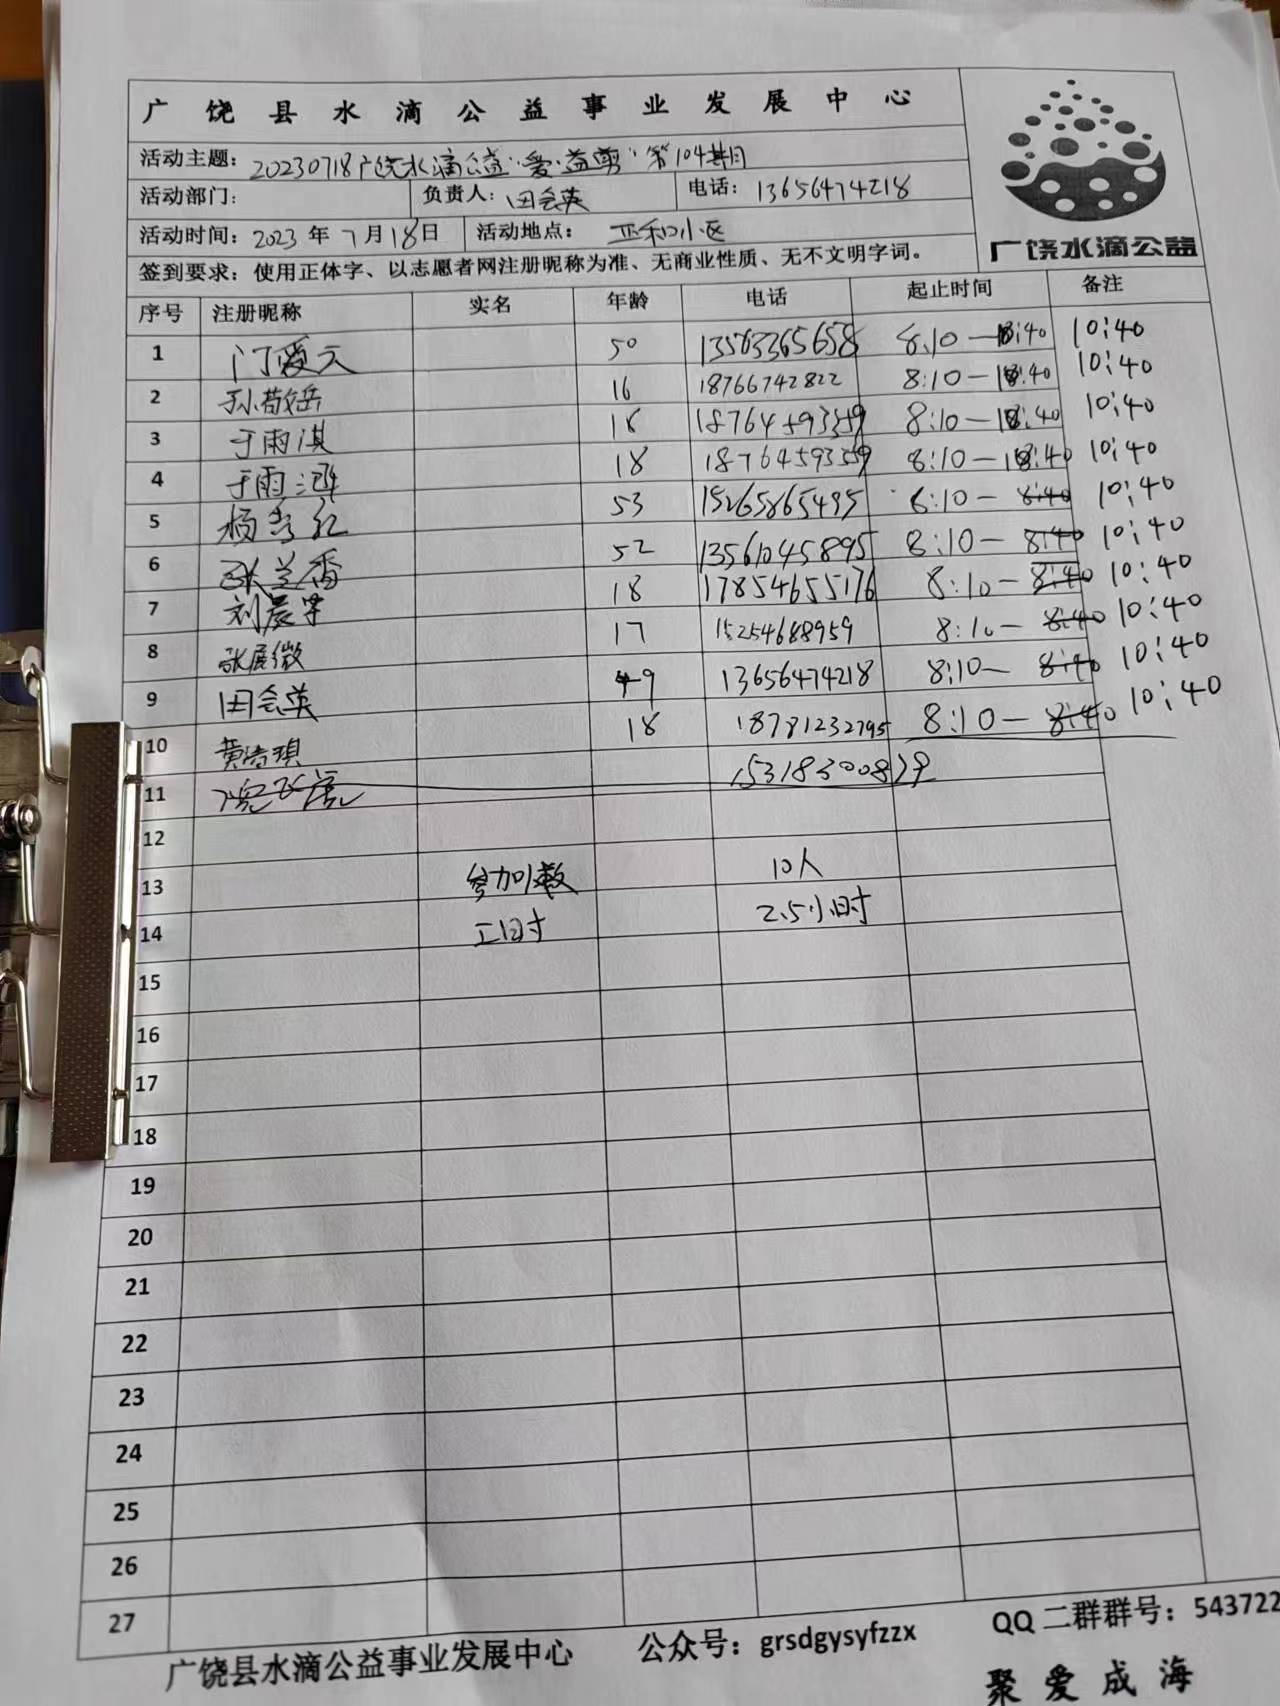 广饶县水滴公益事业发展中心
活动主题：20230718广饶水滴公益“爱·益剪”第104期
活动部门： 负责人：田会英 电话：13656474218
活动时间：2023年7月18日 活动地点：正和小区
广饶水滴公益
签到要求：使用正体字、以志愿者网注册昵称为准、无商业性质、无不文明字词。
序号 注册昵称 实名 年龄 电话 起止时间 备注
1 门爱云 50 13563365658 8:10—8:40 10:40
2 孙敬岳 16 18766742822 8:10—8:40 10:40
3 于雨淇 18 18764593359 8:10—8:40 10:40
4 于雨 18 18764593359 8:10—8:40 10:40
5 杨秀红 53 15265865495 8:10—8:40 10:40
6 张兰香 52 13561045895 8:10—8:40 10:40
7 刘晨宇 18 17854655176 8:10—8:40 10:40
8 张展微 17 15254688959 8:10—8:40 10:40
9 田会英 49 13656474218 8:10—8:40 10:40
10 黄 琪 18 18781232795 8:10—8:40 10:40
11
12
13 参加人数 10人
14 工时 2.5小时
15
16
17
18
19
20
21
22
23
24
25
26
27
广饶县水滴公益事业发展中心 公众号：grsdgysyfzzx QQ二群群号：543722
聚爱成海